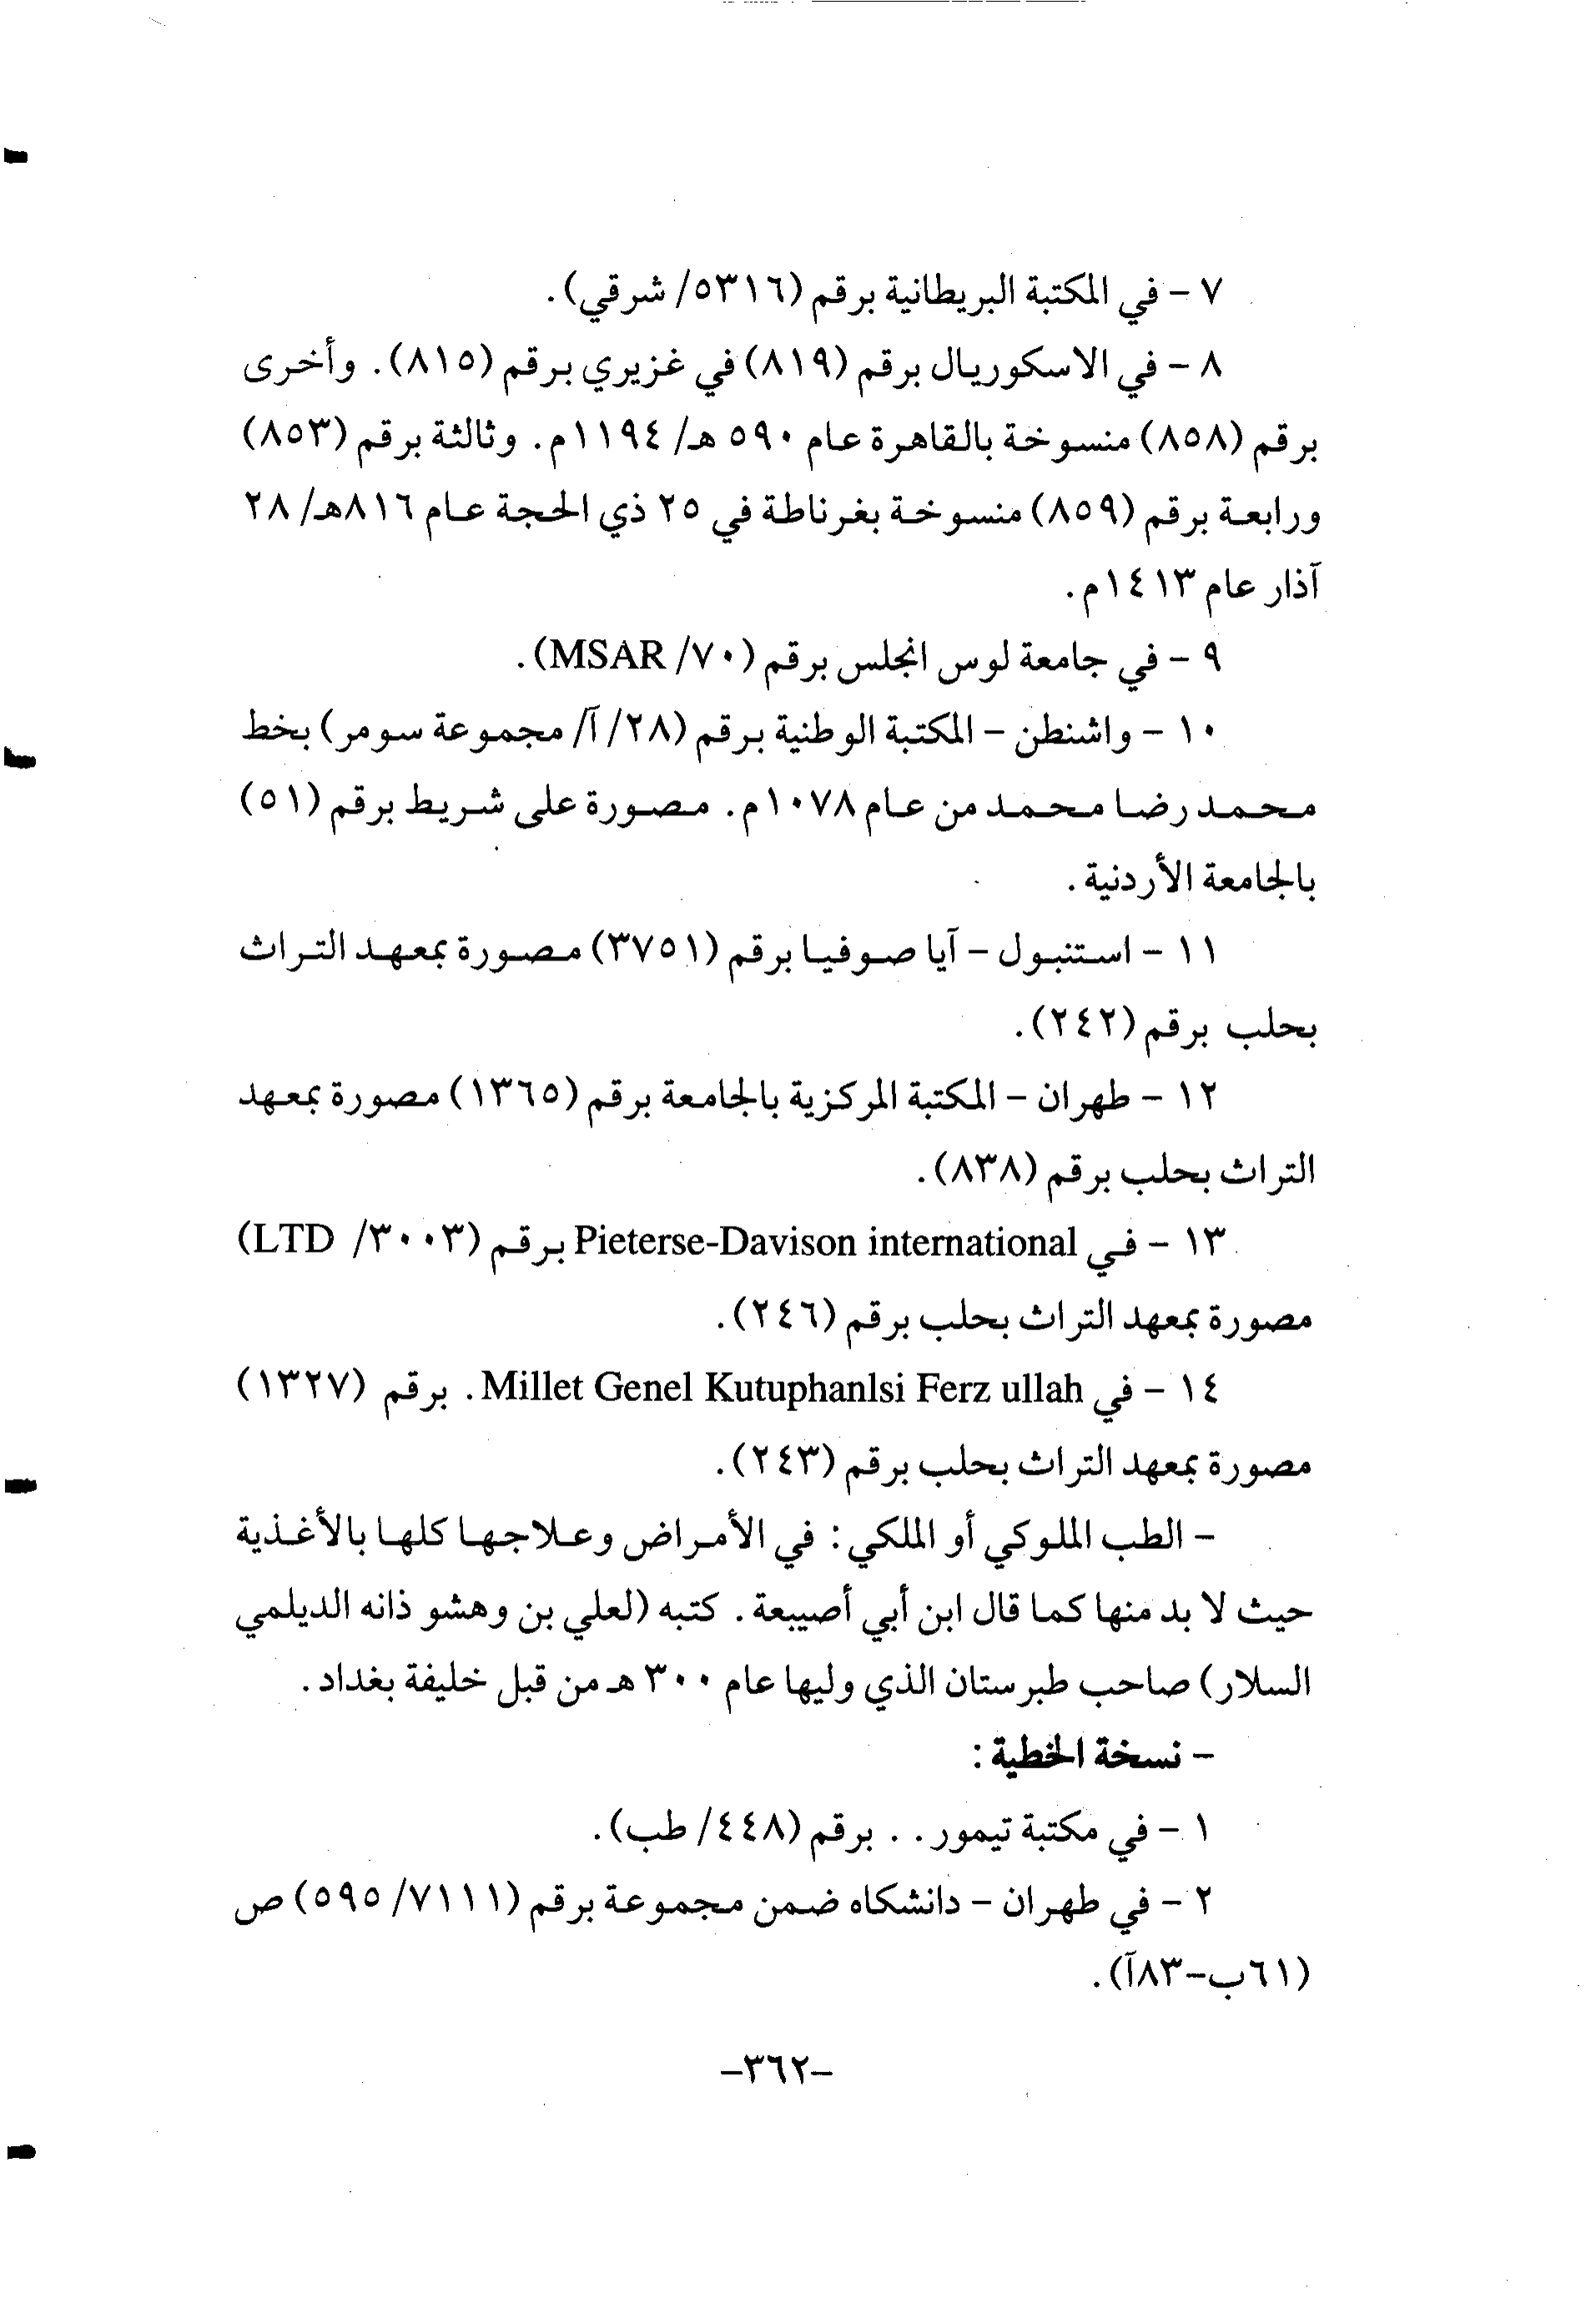 ٧ - في المكتبة البريطانية برقم (٥٣١٦/ شرقي).
٨ - في الاسكوريال برقم (٨١٩) في غزيري برقم (٨١٥). وأخرى
برقم (٨٥٨) منسوخة بالقاهرة عام ٥٩٠ هـ/ ١١٩٤م. وثالثة برقم (٨٥٣)
ورابعة برقم (٨٥٩) منسوخة بغرناطة في ٢٥ ذي الحجة عام ٨١٦هـ/ ٢٨
آذار عام ١٤١٣م.
٩ - في جامعة لوس انجلس برقم (٧٠/ MSAR).
١٠ - واشنطن - المكتبة الوطنية برقم (٢٨/ آ/ مجموعة سومر) بخط
محمد رضا محمد من عام ١٠٧٨م. مصورة على شريط برقم (٥١)
بالجامعة الأردنية.
١١ - استنبول - آيا صوفيا برقم (٣٧٥١) مصورة بمعهد التراث
بحلب برقم (٢٤٢).
١٢ - طهران - المكتبة المركزية بالجامعة برقم (١٣٦٥) مصورة بمعهد
التراث بحلب برقم (٨٣٨).
١٣ - في Pieterse-Davison international برقم (٣٠٠٣/ LTD)
مصورة بمعهد التراث بحلب برقم (٢٤٦).
١٤ - في Millet Genel Kutuphanlsi Ferz ullah. برقم (١٣٢٧)
مصورة بمعهد التراث بحلب برقم (٢٤٣).
- الطب الملوكي أو الملكي: في الأمراض وعلاجها كلها بالأغذية
حيث لا بد منها كما قال ابن أبي أصيبعة. كتبه (لعلي بن وهشو ذانه الديلمي
السلار) صاحب طبرستان الذي وليها عام ٣٠٠ هـ من قبل خليفة بغداد.
- نسخة الخطية:
١ - في مكتبة تيمور.. برقم (٤٤٨/ طب).
٢ - في طهران - دانشكاه ضمن مجموعة برقم (٧١١١/ ٥٩٥) ص
(٦١ب-٨٣آ).
-٣٦٢-